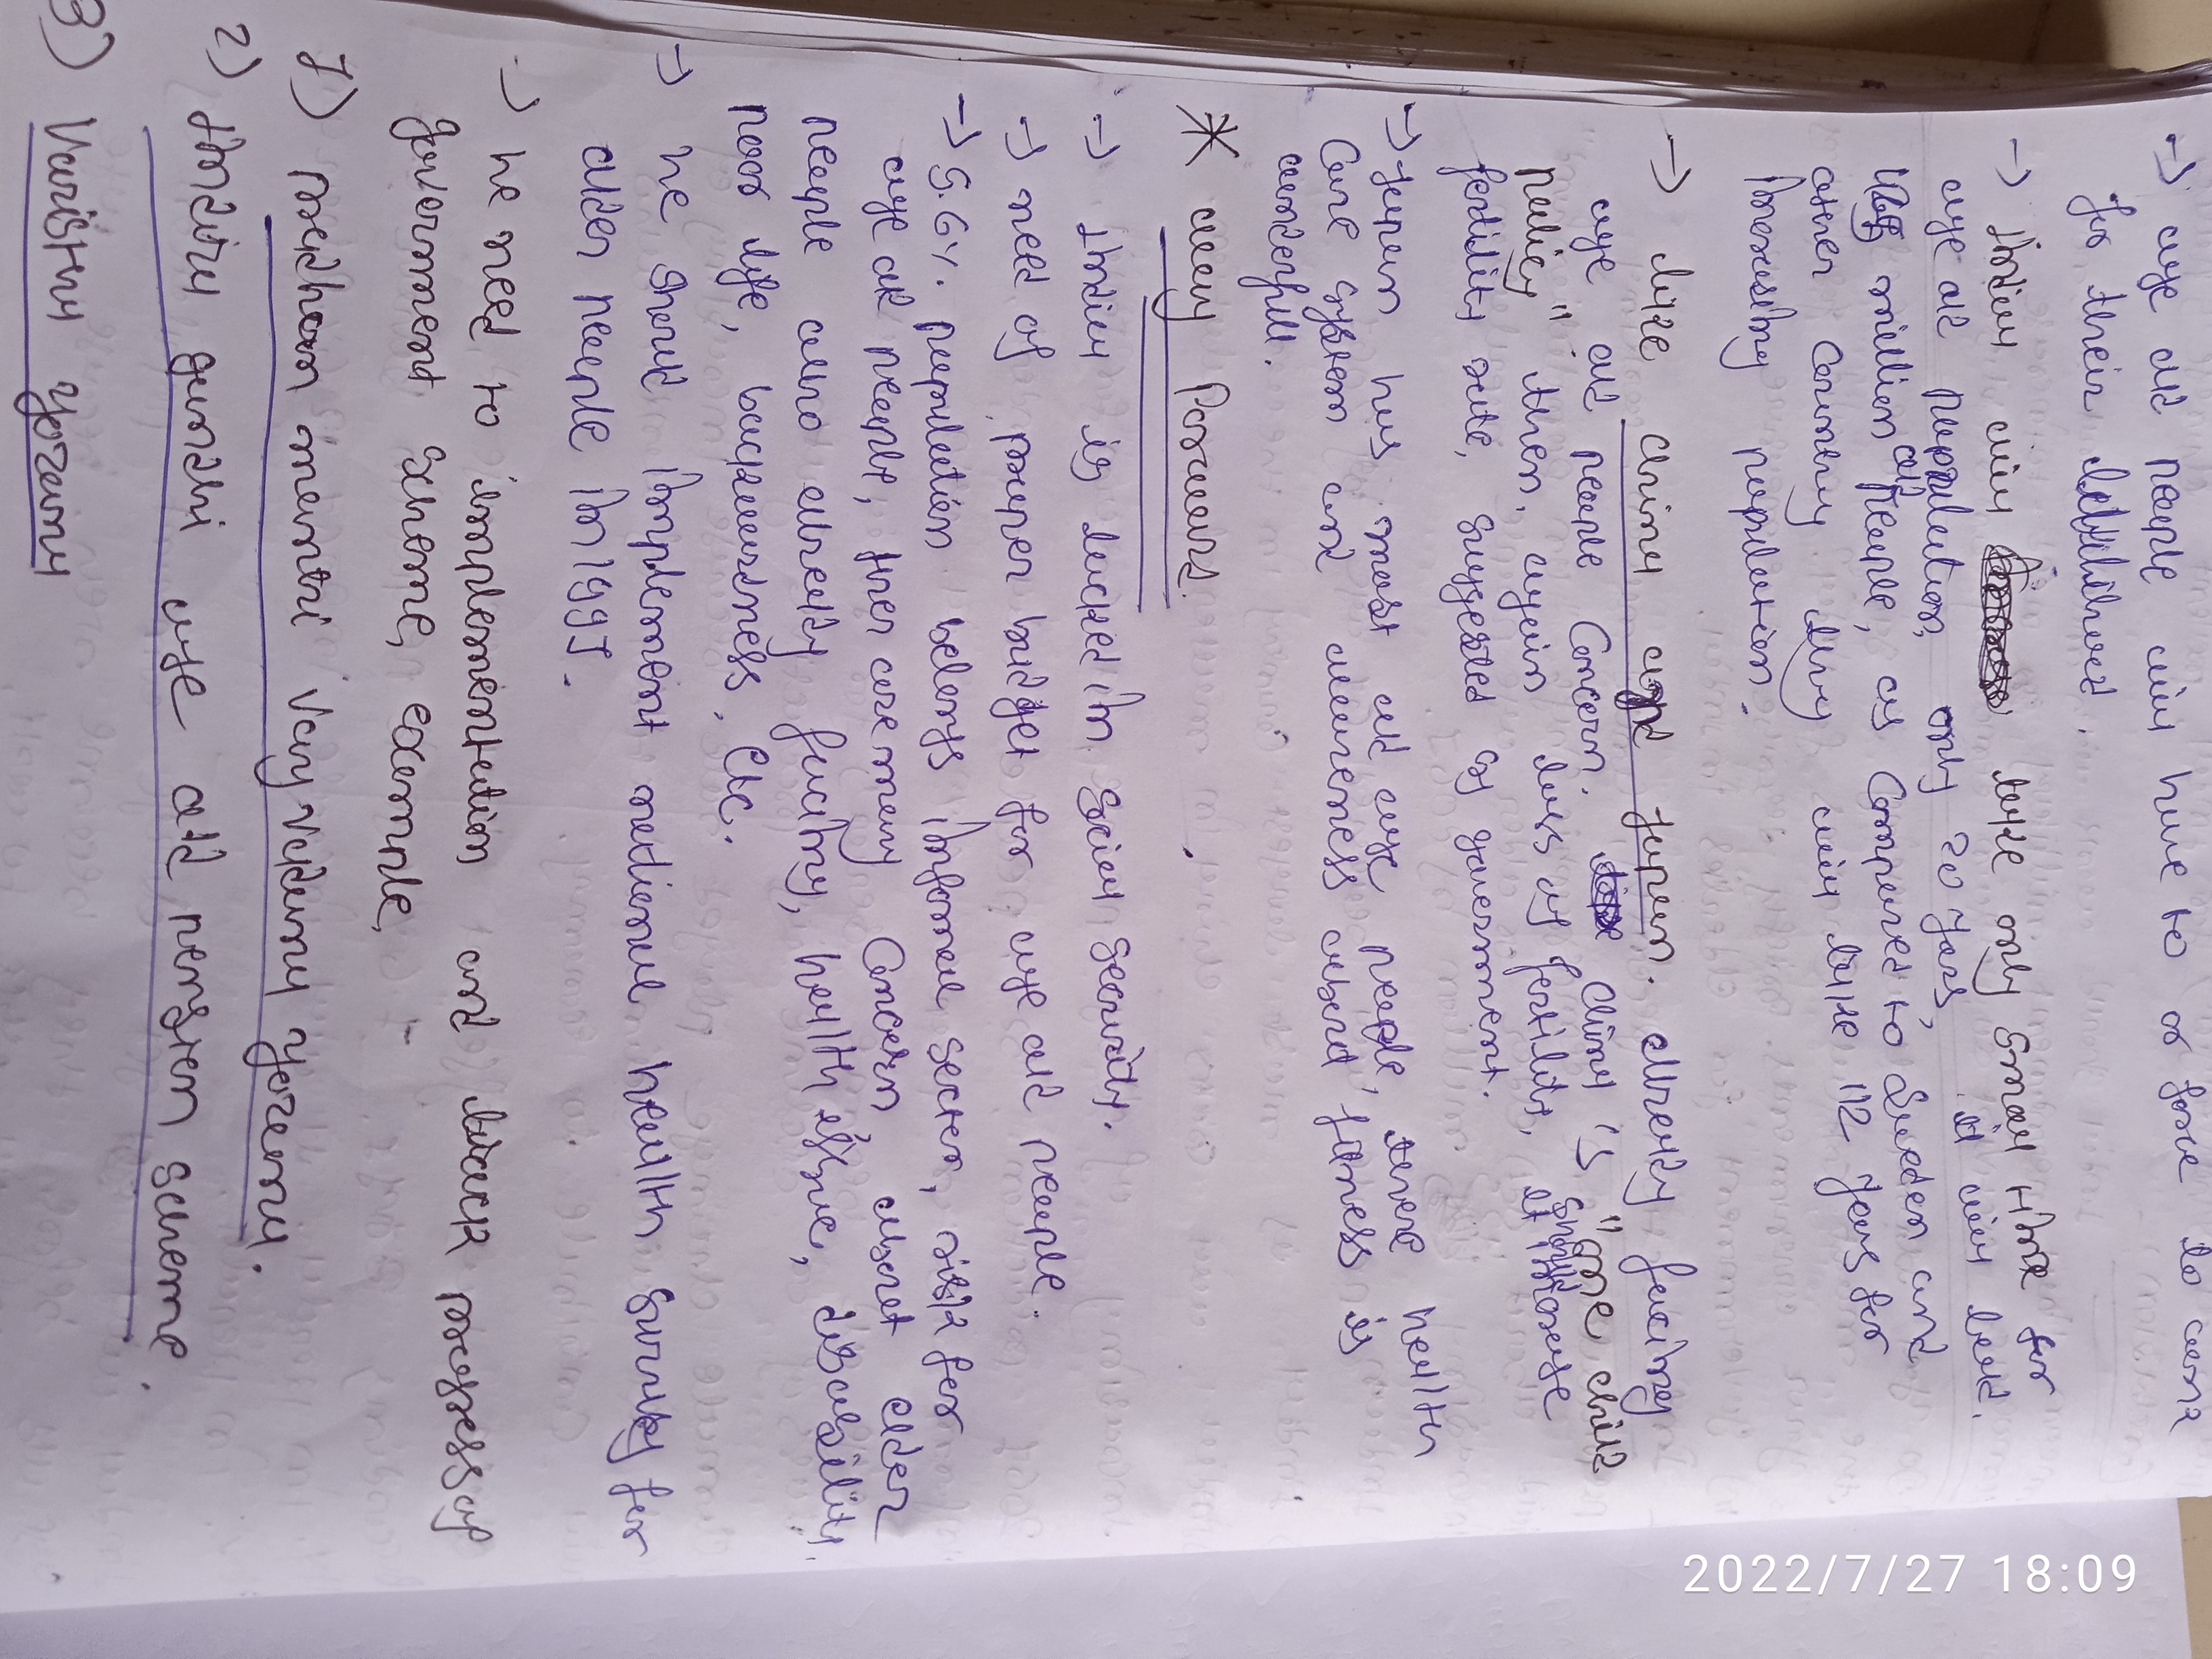 -> age old people will have to or force to work
for their livelihood.
-> India will take only small time for
age old population, only 20 years, it will lead.
million old people, as compared to Sweden and
other country they will take 112 years for
increasing population.
-> like China and Japan. already facing
age old people concern. China is "one child
policy" then again loss of fertility, it increase
fertility rate, suggested by government.
-> Japan has most old age people, there health
care system and awareness about fitness is
wonderfull.
* way forward.
-> India is lacked in social security.
-> need of proper budget for age old people.
-> 5.6%. population belongs informal sector, risk for
age old people, ther are many concern, about older
people who already facing, health issue, disability
poor life, backwardness, etc.
-> he should implement national health survey for
older people in 1995.
-> he need to implementation and track progress of
government scheme, example,
1) pradhan mantri vay vandana yozana.
2) Indira gandhi age old pension scheme.
3) Varistha yozana
2022/7/27 18:09